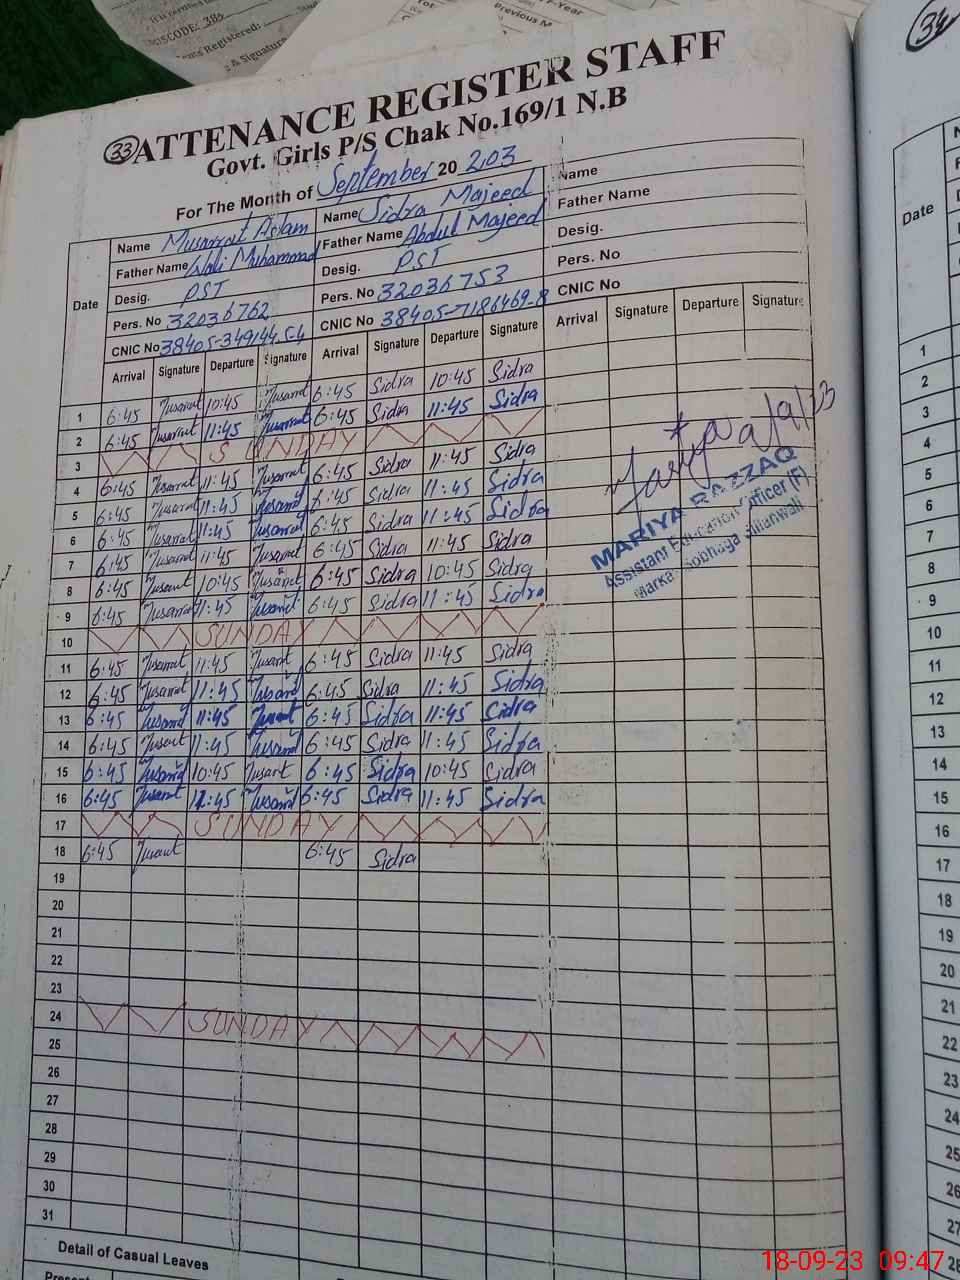 MISCODE: 384
Registered:
& Signature
-Year
Previous M
33
34
ATTENANCE REGISTER STAFF
Govt. Girls P/S Chak No.169/1 N.B
For The Month of September 20 203
Date
Name Musarrat Aslam Name Sidra Majeed Name
Father Name Wali Muhammad Father Name Abdul Majeed Father Name
Desig. PST Desig. PST Desig.
Pers. No 32036762 Pers. No 32036753 Pers. No
CNIC No CNIC No 38405-7186469-8 CNIC No
Arrival Signature Departure Signature Arrival Signature Departure Signature Arrival Signature Departure Signature
1 6:45 Musarrat 10:45 Musarrat 6:45 Sidra 10:45 Sidra
2 6:45 Musarrat 11:45 Musarrat 6:45 Sidra 11:45 Sidra
3 SUNDAY
4 6:45 Musarrat 11:45 Musarrat 6:45 Sidra 11:45 Sidra
5 6:45 Musarrat 11:45 Musarrat 6:45 Sidra 11:45 Sidra
6 6:45 Musarrat 11:45 Musarrat 6:45 Sidra 11:45 Sidra
7 6:45 Musarrat 11:45 Musarrat 6:45 Sidra 11:45 Sidra
8 6:45 Musarrat 10:45 Musarrat 6:45 Sidra 10:45 Sidra
9 6:45 Musarrat 11:45 Musarrat 6:45 Sidra 11:45 Sidra
10 SUNDAY
11 6:45 Musarrat 11:45 Musarrat 6:45 Sidra 11:45 Sidra
12 6:45 Musarrat 11:45 Musarrat 6:45 Sidra 11:45 Sidra
13 6:45 Musarrat 11:45 Musarrat 6:45 Sidra 11:45 Sidra
14 6:45 Musarrat 11:45 Musarrat 6:45 Sidra 11:45 Sidra
15 6:45 Musarrat 10:45 Musarrat 6:45 Sidra 10:45 Sidra
16 6:45 Musarrat 11:45 Musarrat 6:45 Sidra 11:45 Sidra
17 SUNDAY
18 6:45 Musarrat 6:45 Sidra
19
20
21
22
23
24 SUNDAY
25
26
27
28
29
30
31
MARIYA RAZZAQ
Assistant Education Officer (F)
Markaz Sobhaga Sillanwali
Detail of Casual Leaves
Date
1
2
3
4
5
6
7
8
9
10
11
12
13
14
15
16
17
18
19
20
21
22
23
24
25
26
27
28
18-09-23 09:47